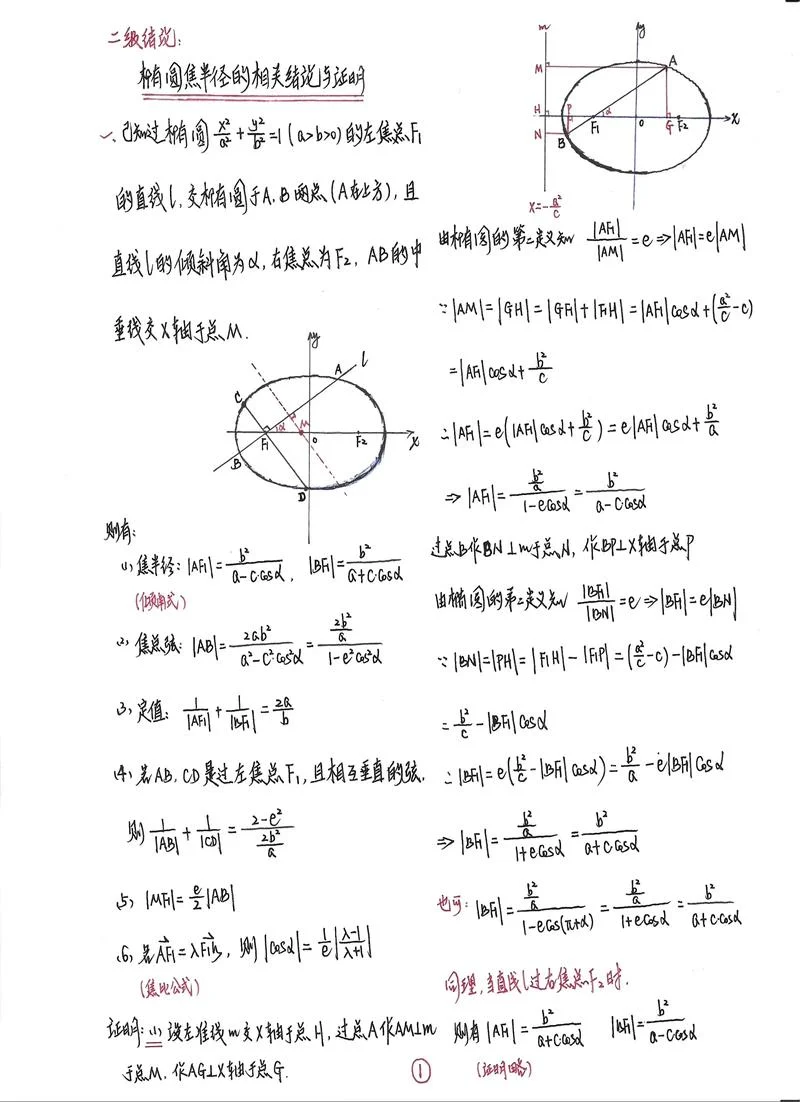 二级结论:
椭圆焦半径的相关结论与证明
一、已知过椭圆 x²/a² + y²/b² = 1 (a>b>0) 的左焦点F₁
的直线l, 交椭圆于A, B两点(A在上方), 且
直线l的倾斜角为α, 右焦点为F₂, AB的中
垂线交X轴于点M.
y
A
l
C
α
M
F₁
O
F₂
x
B
D
则有:
(1) 焦半径: |AF₁| = b²/(a-c·cosα), |BF₁| = b²/(a+c·cosα)
(倾角式)
(2) 焦点弦: |AB| = 2ab²/(a²-c²cos²α) = (2b²/a)/(1-e²cos²α)
(3) 定值: 1/|AF₁| + 1/|BF₁| = 2a/b
(4) 若AB, CD是过左焦点F₁, 且相互垂直的弦,
则 1/|AB| + 1/|CD| = (2-e²)/(2b²/a)
(5) |MF₁| = e/2 |AB|
(6) 若AF₁ = λF₁B, 则 |cosα| = 1/e |(λ-1)/(λ+1)|
(焦比公式)
证明: (1) 设左准线m交X轴于点H, 过点A作AM⊥m
于点M, 作AG⊥X轴于点G.
m
y
M
A
H
P
α
F₁
O
G
F₂
x
N
B
x = -a²/c
由椭圆的第二定义知 |AF₁|/|AM| = e ⇒ |AF₁| = e|AM|
∵ |AM| = |GH| = |GF₁| + |F₁H| = |AF₁|cosα + (a²/c - c)
= |AF₁|cosα + b²/c
∴ |AF₁| = e(|AF₁|cosα + b²/c) = e|AF₁|cosα + b²/a
⇒ |AF₁| = (b²/a)/(1-ecosα) = b²/(a-c·cosα)
过点B作BN⊥m于点N, 作BP⊥X轴于点P
由椭圆的第二定义知 |BF₁|/|BN| = e ⇒ |BF₁| = e|BN|
∵ |BN| = |PH| = |F₁H| - |F₁P| = (a²/c - c) - |BF₁|cosα
= b²/c - |BF₁|cosα
∴ |BF₁| = e(b²/c - |BF₁|cosα) = b²/a - e|BF₁|cosα
⇒ |BF₁| = (b²/a)/(1+ecosα) = b²/(a+c·cosα)
也可: |BF₁| = (b²/a)/(1-ecos(π+α)) = (b²/a)/(1+ecosα) = b²/(a+c·cosα)
同理, 当直线l过右焦点F₂时.
则有 |AF₁| = b²/(a+c·cosα) |BF₁| = b²/(a-c·cosα)
(证明略)
①